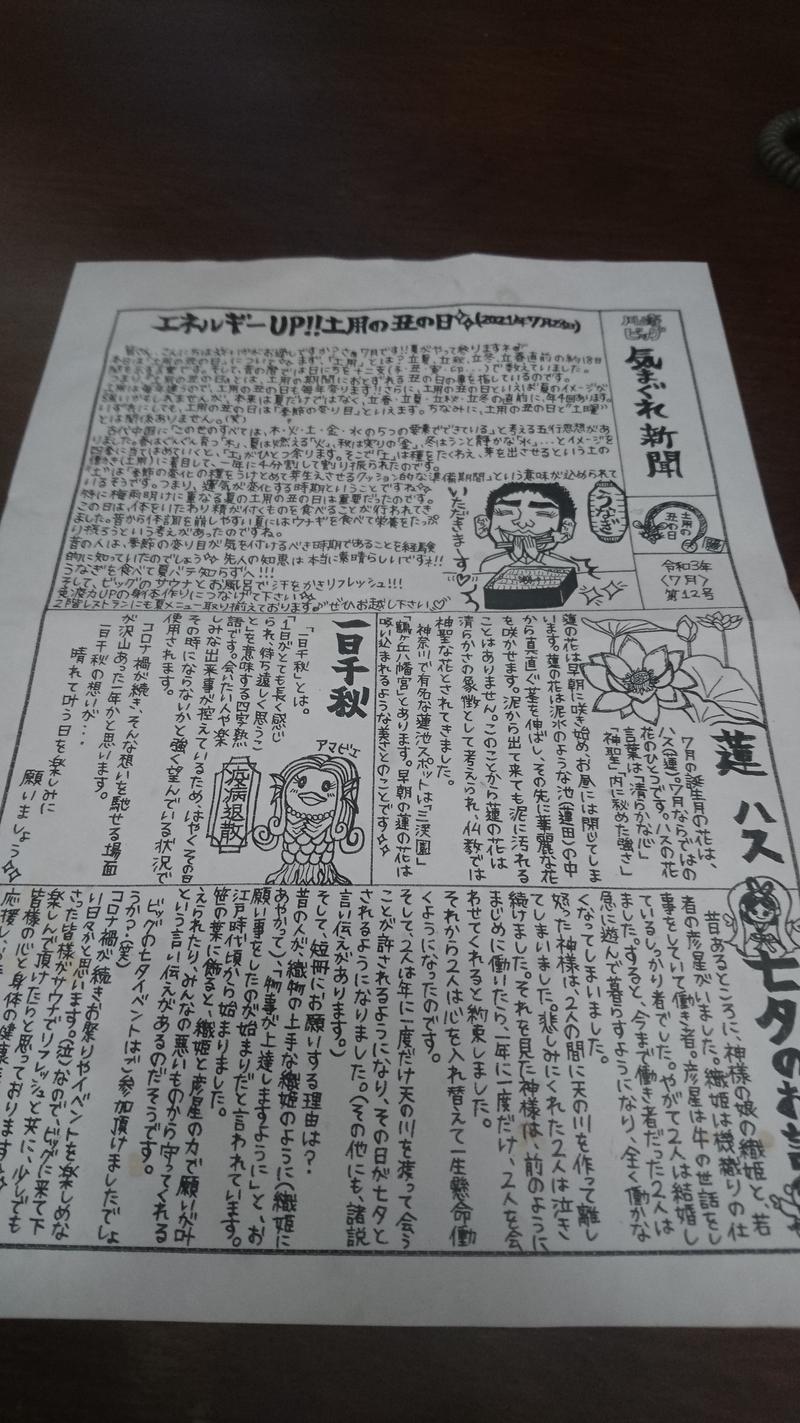 エネルギーUP!!土用の丑の日☆(2021年7月28日)
気まぐれ新聞
土用の丑の日
令和3年
〈7月〉
第12号
うなぎ
いただきまーす♡
とは関係ありません。(笑)
古代中国に"この世のすべては、木・火・土・金・水の5つの要素でできている"と考える五行思想があ
りました。春はぐんぐん育つ"木"、夏は燃える"火"、秋は実りの"金"、冬はシンと静かな"水"…とイメージを
四季に当てはめていくと、"土"がひとつ余ります。そこで"土"は種をたくわえ、芽を出させるという土の
働き(土用)に着目して、一年に4分割して割り振られたのです。
"土"は"季節の変化の種をうけとめて芽生えさせるクッション的な準備期間"という意味が込められて
いるそうです。つまり、運気が変化する時期ということですね☆
特に梅雨明けに重なる夏の土用の丑の日は重要だったのです。
この日は、体をいたわり精が付くものを食べることが行われてき
ました。昔から体調を崩しやすい夏にはウナギを食べて栄養をたっぷ
り摂ろうという考えがあったのですね。
昔の人は、季節の変り目が気を付けるべき時期であることを経験
的に知っていたのでしょう☆先人の知恵は本当に素晴らしいです!!
うなぎを食べて夏バテ知らず〜!!!
そして、ビッグのサウナとお風呂で汗をかきリフレッシュ!!!
免疫力UPの身体作りにつなげて下さい♪
2階レストランにも夏メニュー取り揃えております♪ぜひお越し下さい♡
蓮 ハス
7月の誕生月の花は、
ハス(蓮)。7月ならではの
花のひとつです。ハスの花
言葉は「清らかな心」
「神聖」「内に秘めた強さ」
蓮の花は早朝に咲き始め、お昼には閉じてしま
います。蓮の花は泥水のような池(蓮田)の中
から真直ぐ茎を伸ばし、その先に華麗な花
を咲かせます。泥から出て来ても泥に汚れる
ことはありません。このことから蓮の花は
清らかさの象徴として考えられ、仏教では
神聖な花とされてきました。
神奈川で有名な蓮池スポットは「三渓園」
「鶴ヶ丘八幡宮」とあります。早朝の蓮の花は
吸い込まれるような美さとのことです☆
一日千秋
「一日千秋」とは。
「1日がとても長く感じ
られ、待ち遠しく思うこ
と」を意味する四字熟
語です。会いたい人や楽
しみな出来事が控えているため、はやくその日
その時にならないかと強く望んでいる状況で
使用されます。
コロナ禍が続き、そんな想いを馳せる場面
が沢山あった一年かと思います。
一日千秋の想いが…
晴れて叶う日を楽しみに
願いましょう☆
アマビエ
疫病退散
七夕のお話
昔あるところに、神様の娘の織姫と、若
者の彦星がいました。織姫は機織りの仕
事をしていて働き者。彦星は牛の世話をし
ているしっかり者でした。やがて2人は結婚し
ました。すると、今まで働き者だった2人は
急に遊んで暮らすようになり、全く働かな
くなってしまいました。
怒った神様は、2人の間に天の川を作って離し
てしまいました。悲しみにくれた2人は泣き
続けました。それを見た神様は、前のように
まじめに働いたら、一年に一度だけ、2人を会
わせてくれると約束しました。
それから2人は心を入れ替えて一生懸命働
くようになったのです。
そして、2人は年に一度だけ天の川を渡って会う
ことが許されるようになり、その日が七夕と
されるようになりました。(その他にも、諸説
言い伝えがあります。)
そして、短冊にお願いする理由は?
昔の人が、織物の上手な織姫のように(織姫に
あやかって)、「物事が上達しますように」と、お
願い事をしたのが始まりだと言われています。
江戸時代頃から始まりました。
笹の葉に飾ると、織姫と彦星の力で願いが叶
えられたり、みんなの悪いものから守ってくれる
という言い伝えがあるのだそうです。
ビッグの七夕イベントはご参加頂けましたでしょ
うか?(笑)
コロナ禍が続きお祭りやイベントを楽しめな
い日々かと思います。(泣)なので、ビッグに来て下
さった皆様がサウナでリフレッシュと共に、少しでも
楽しんで頂けたらと思っております☆
皆様の心と身体の健康を